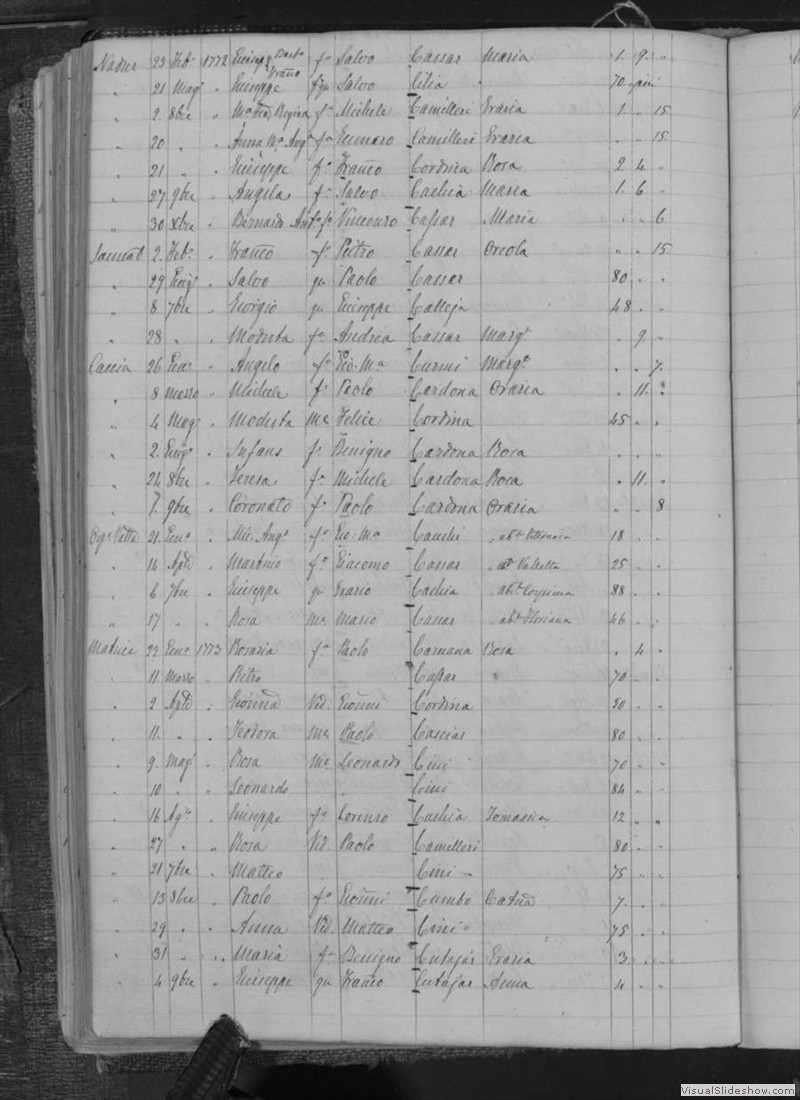 Nadur 23 Feb. 1772 Giuseppe Bart. Franco f. Salvo Cassar Maria 1. 9. "
" 21 Mag. " Giuseppe Salvo Cilia " 70
" 2. 8bre " Regina f. Michele Camilleri Grazia 1. " 15
" 20 " " Anna Ma. Ang. fa Gennaro Camilleri Grazia " " 15
" 21 " " Giuseppe f. Franco Cordina Rosa 2 4 "
" 27 9bre " Angela f. Salvo Cachia Maria 1. 6 "
" 30 Xbre " Bernardo Ant. f. Vincenzo Cassar Maria " " 6
Sannat 2. Feb. " Franco f. Pietro Cassar Orsola " " 15
" 29 Giug. " Salvo qu Paolo Cassar 80 " "
" 8 7bre " Giorgio qu Giuseppe Calleja 48 " "
" 28 " " Modesta fa Andrea Cassar Marga. " 9. "
Caccia 26 " Angelo f. Gio. Ma Curmi Marga. " " 7.
" 8 Marzo " Michele f. Paolo Cardona Grazia " 11. "
" 4 Mag. " Modesta Me Felice Cordina 45 " "
" 2. Giug. " Infans f. Benigno Cardona Rosa " " "
" 24 8bre " Teresa fa Michele Cardona Rosa " 11. "
" 7. 9bre " Coronato f. Paolo Cardona Grazia " " 8
21. Gen. " Mic. Ang. f. Gio. Ma abt. Vittoriosa 18 " "
" 14 Aple " Martino f. Giacomo Cassar abt. Valletta 25 " "
" 6 7bre " Giuseppe qu Grazio Cachia abt. Cospicua 88 " "
" 17 " " Rosa Me Mario Cassar abt. Floriana 46 " "
Matrice 22 Gen. 1773 Rosaria fa Paolo Caruana Rosa " 4 "
" 11. Marzo " Pietro Cassar 70 " "
" 2 Aple " Gionna Ved. Gionni Cordina 50 " "
" 11. " " Teodora Me Paolo Casciar 80 " "
" 9. Mag. " Rosa Me Leonardo Cini 70 " "
" 10 " " Leonardo Cini 84 " "
" 16 Ago. " Giuseppe f. Lorenzo Cachia Tomasica 12 " "
" 27 " " Rosa Ved. Paolo Camilleri 80 " "
" 21 7bre " Matteo Cini 75 " "
" 13 8bre " Paolo f. Gionni Cumbo Catna 7. " "
" 29 " " Anna Ved. Matteo Cini 75 " "
" 31 " " Maria fa Benigno Cutajar Grazia 3 " "
" 4 9bre " Giuseppe qu Franco Cutajar Anna 4 " "
VisualSlideshow.com